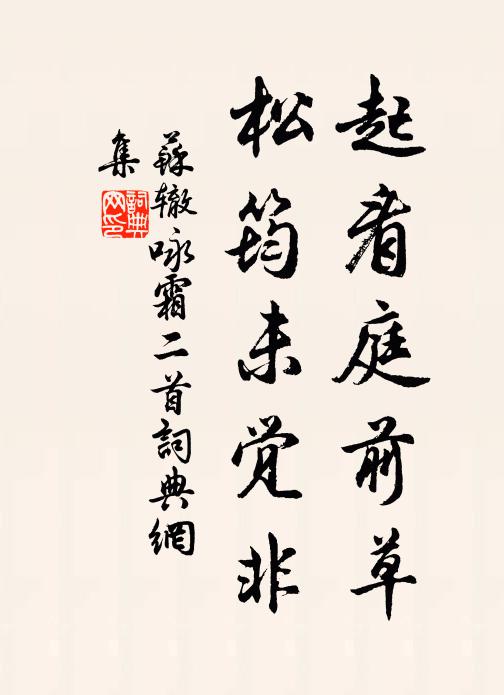 起看庭前草
松筠未觉非
蘇辙咏霜二首詞典網
集
詞典
网印